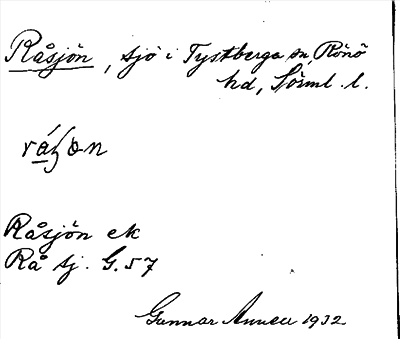 Råsjön, sjö i Tystberga sn, Rönö
hd, Sörml. l.
Råsjön ek
Rå sj. G. 57
Gunnar 1932